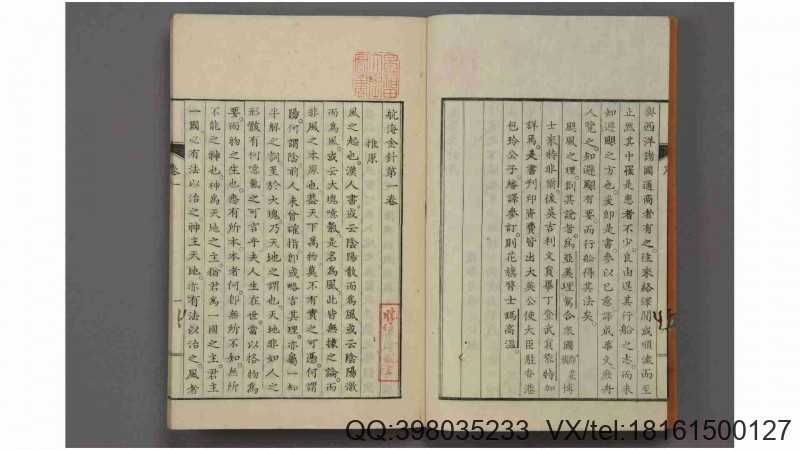 與西洋諸國通商者有之往來絡繹間或順流而至
止然其中罹是患者不少良由逞其行船之志而未
知避颶之方也爰即是書參以己意譯成華文飭舟
人覽之知避颶有要而行船得其法矣
颶風之理創其說者為亞美理駕合衆國
士家特非爾後英吉利文員畢丁登武員黎特如
詳焉是書刊印資費皆出大英公使大臣駐香港
包玲公子繙譯參訂則花旗醫士瑪高溫
航海金針第一卷
推原
風之起也漢人書或云陰陽散而為風或云陰陽激
而為風或云大塊噫氣是名為風此皆無據之論而
非風之本原也蓋天下萬物莫不有實之可憑何謂
陽何謂陰前人未曾確指即或略言其理亦屬一知
半解之詞至於大塊乃天地之謂也天地非如人之
形骸有何噫氣之可言乎夫人生在世當以格物為
要而物之生也悉有所本本者何即無所不知無所
不能之神也神為天地之主猶君為一國之主君主
一國必有法以治之神主天地亦有法以治之風者
卷一
一
QQ:398035233 VX/tel:18161500127